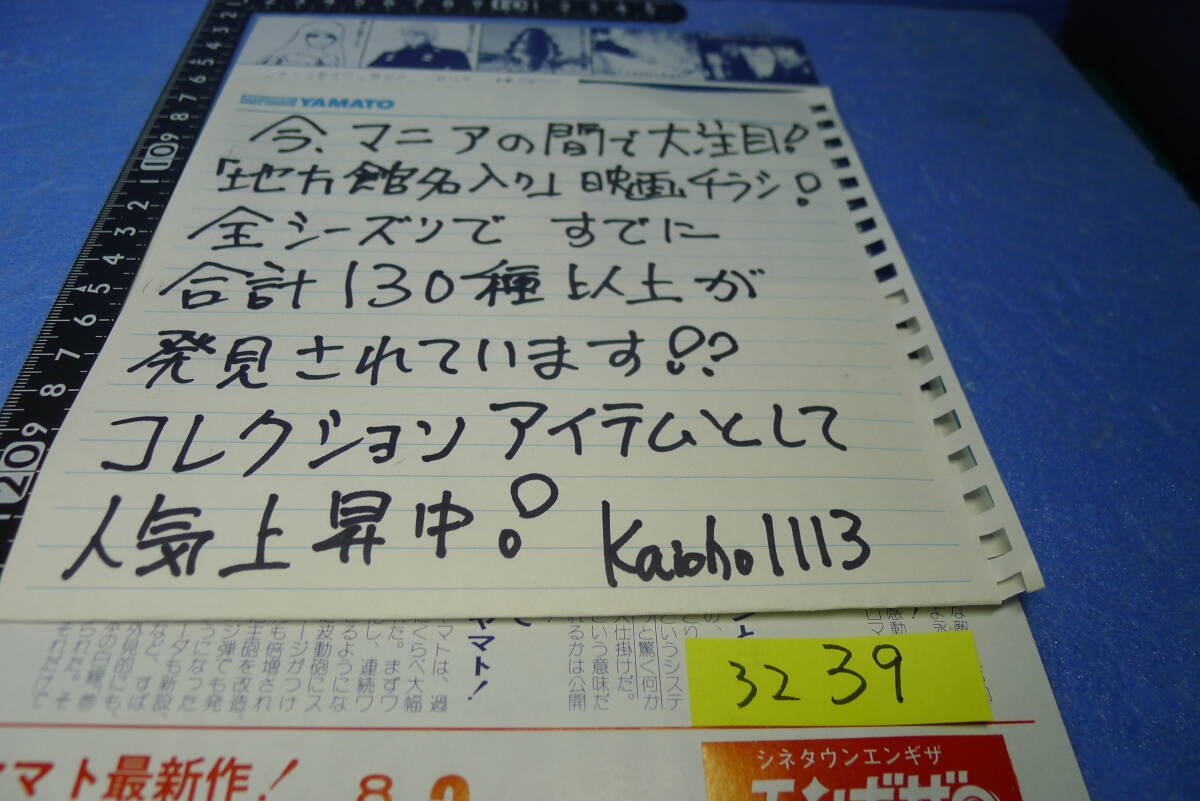 YAMATO
今、マニアの間で大注目!
「地方館名入り」映画チラシ!
全シーズンで すでに
合計130種以上が
発見されています!?
コレクションアイテムとして
人気上昇中!
Kaioho1113
32 39
ヤマト!
マトは、過
くらべ大幅
だ。まずワ
し、連続ワ
波動砲にス
るようにな
ージがつけ
も倍増され
主砲を改造、
ジ弾でも発
うになった
ータも新設、
など、すば
というシステ
と驚く何か
大仕掛けだ。
という意味だ
れるかは公開
マト最新作!
8
シネタウンエンギザ
エンギザ